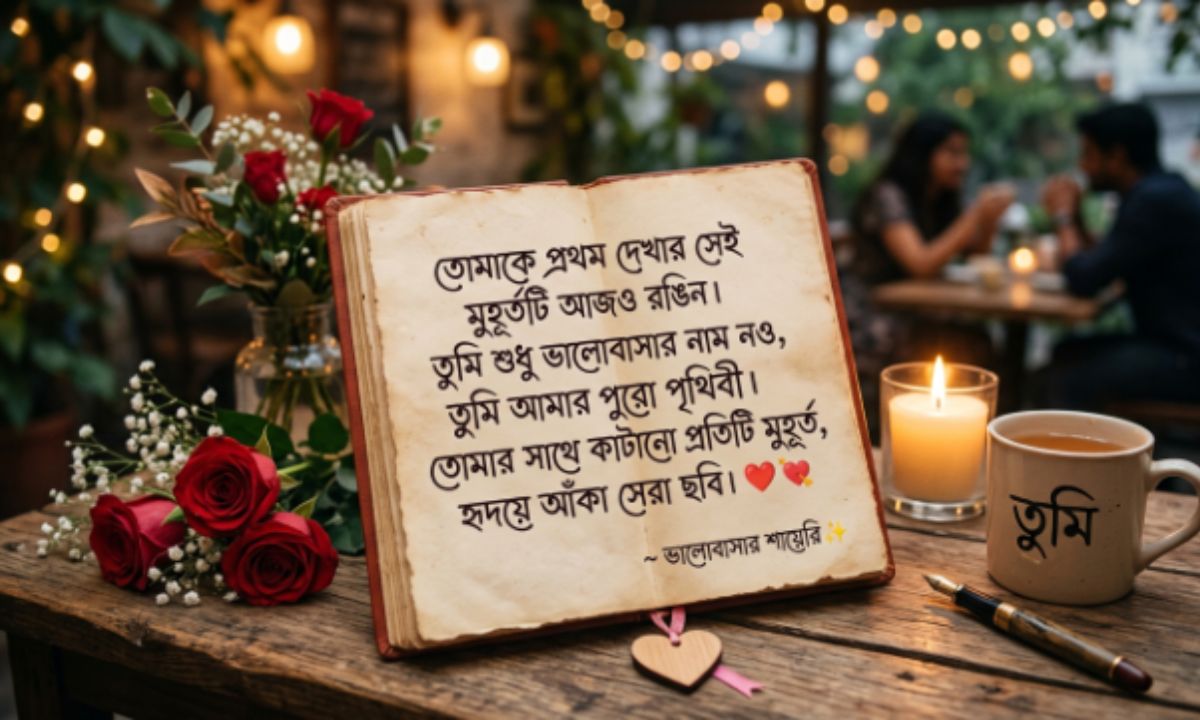 তোমাকে প্রথম দেখার সেই
মুহূর্তটি আজও রঙিন।
তুমি শুধু ভালোবাসার নাম নও,
তুমি আমার পুরো পৃথিবী।
তোমার সাথে কাটানো প্রতিটি মুহূর্ত,
হৃদয়ে আঁকা সেরা ছবি। ❤️💘
~ ভালোবাসার শায়েরি ✨
তুমি